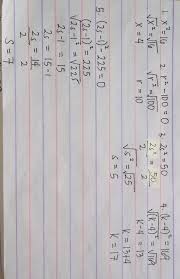 1. x²=16
√x²=√16
x=4
2. r²-100=0
√r²=√100
r=10
3. 2s²=50
2s²/2 = 50/2
√s²=√25
s=5
4. (k-4)²=169
√(k-4)²=√169
k-4=13
k=13+4
k=17
5. (2s-1)²-225=0
(2s-1)²=225
√(2s-1)²=√225
2s-1=15
2s=15-1
2s/2=14/2
s=7